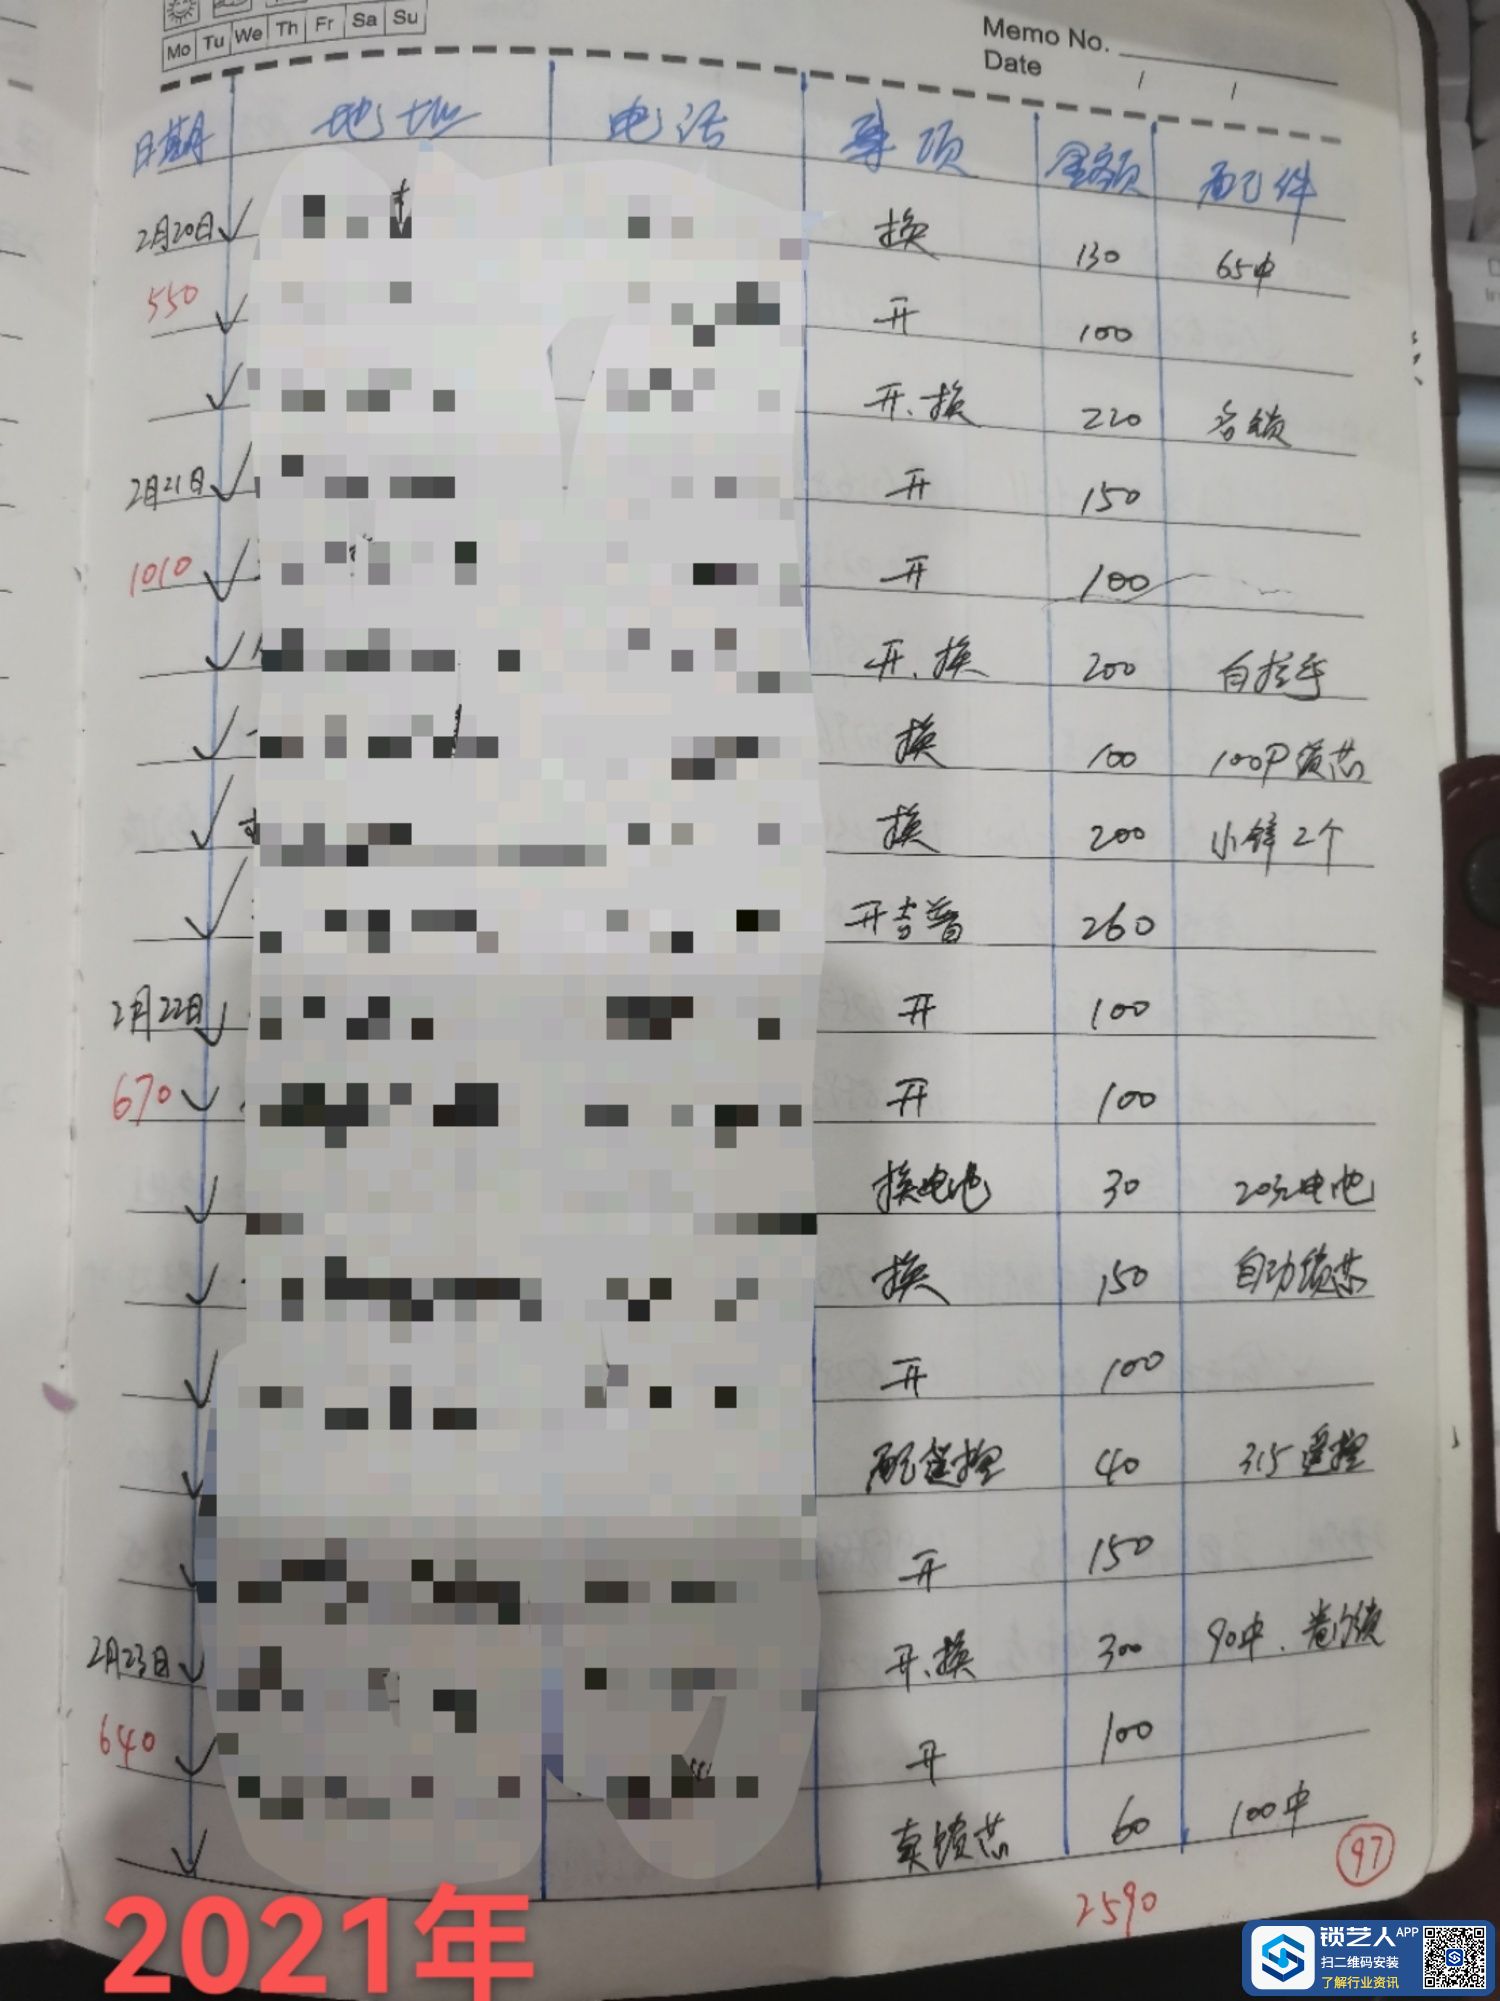 Mo Tu We Th Fr Sa Su
Memo No.
Date / /
日期 地址 电话 事项 金额 配件
2月20日 换 130 65中
550 开 100
开、换 220
2月21日 开 150
1010 开 100
开、换 200 白拉手
换 100 100P锁芯
换 200 小锌2个
开吉普 260
2月22日 开 100
670 开 100
换电池 30 20元电池
换 150 自动锁芯
开 100
配遥控 40 315遥控
开 150
2月23日 开、换 300 90中、
640 开 100
卖锁芯 60 100中
97
2590
2021年
锁艺人APP
扫二维码安装
了解行业资讯